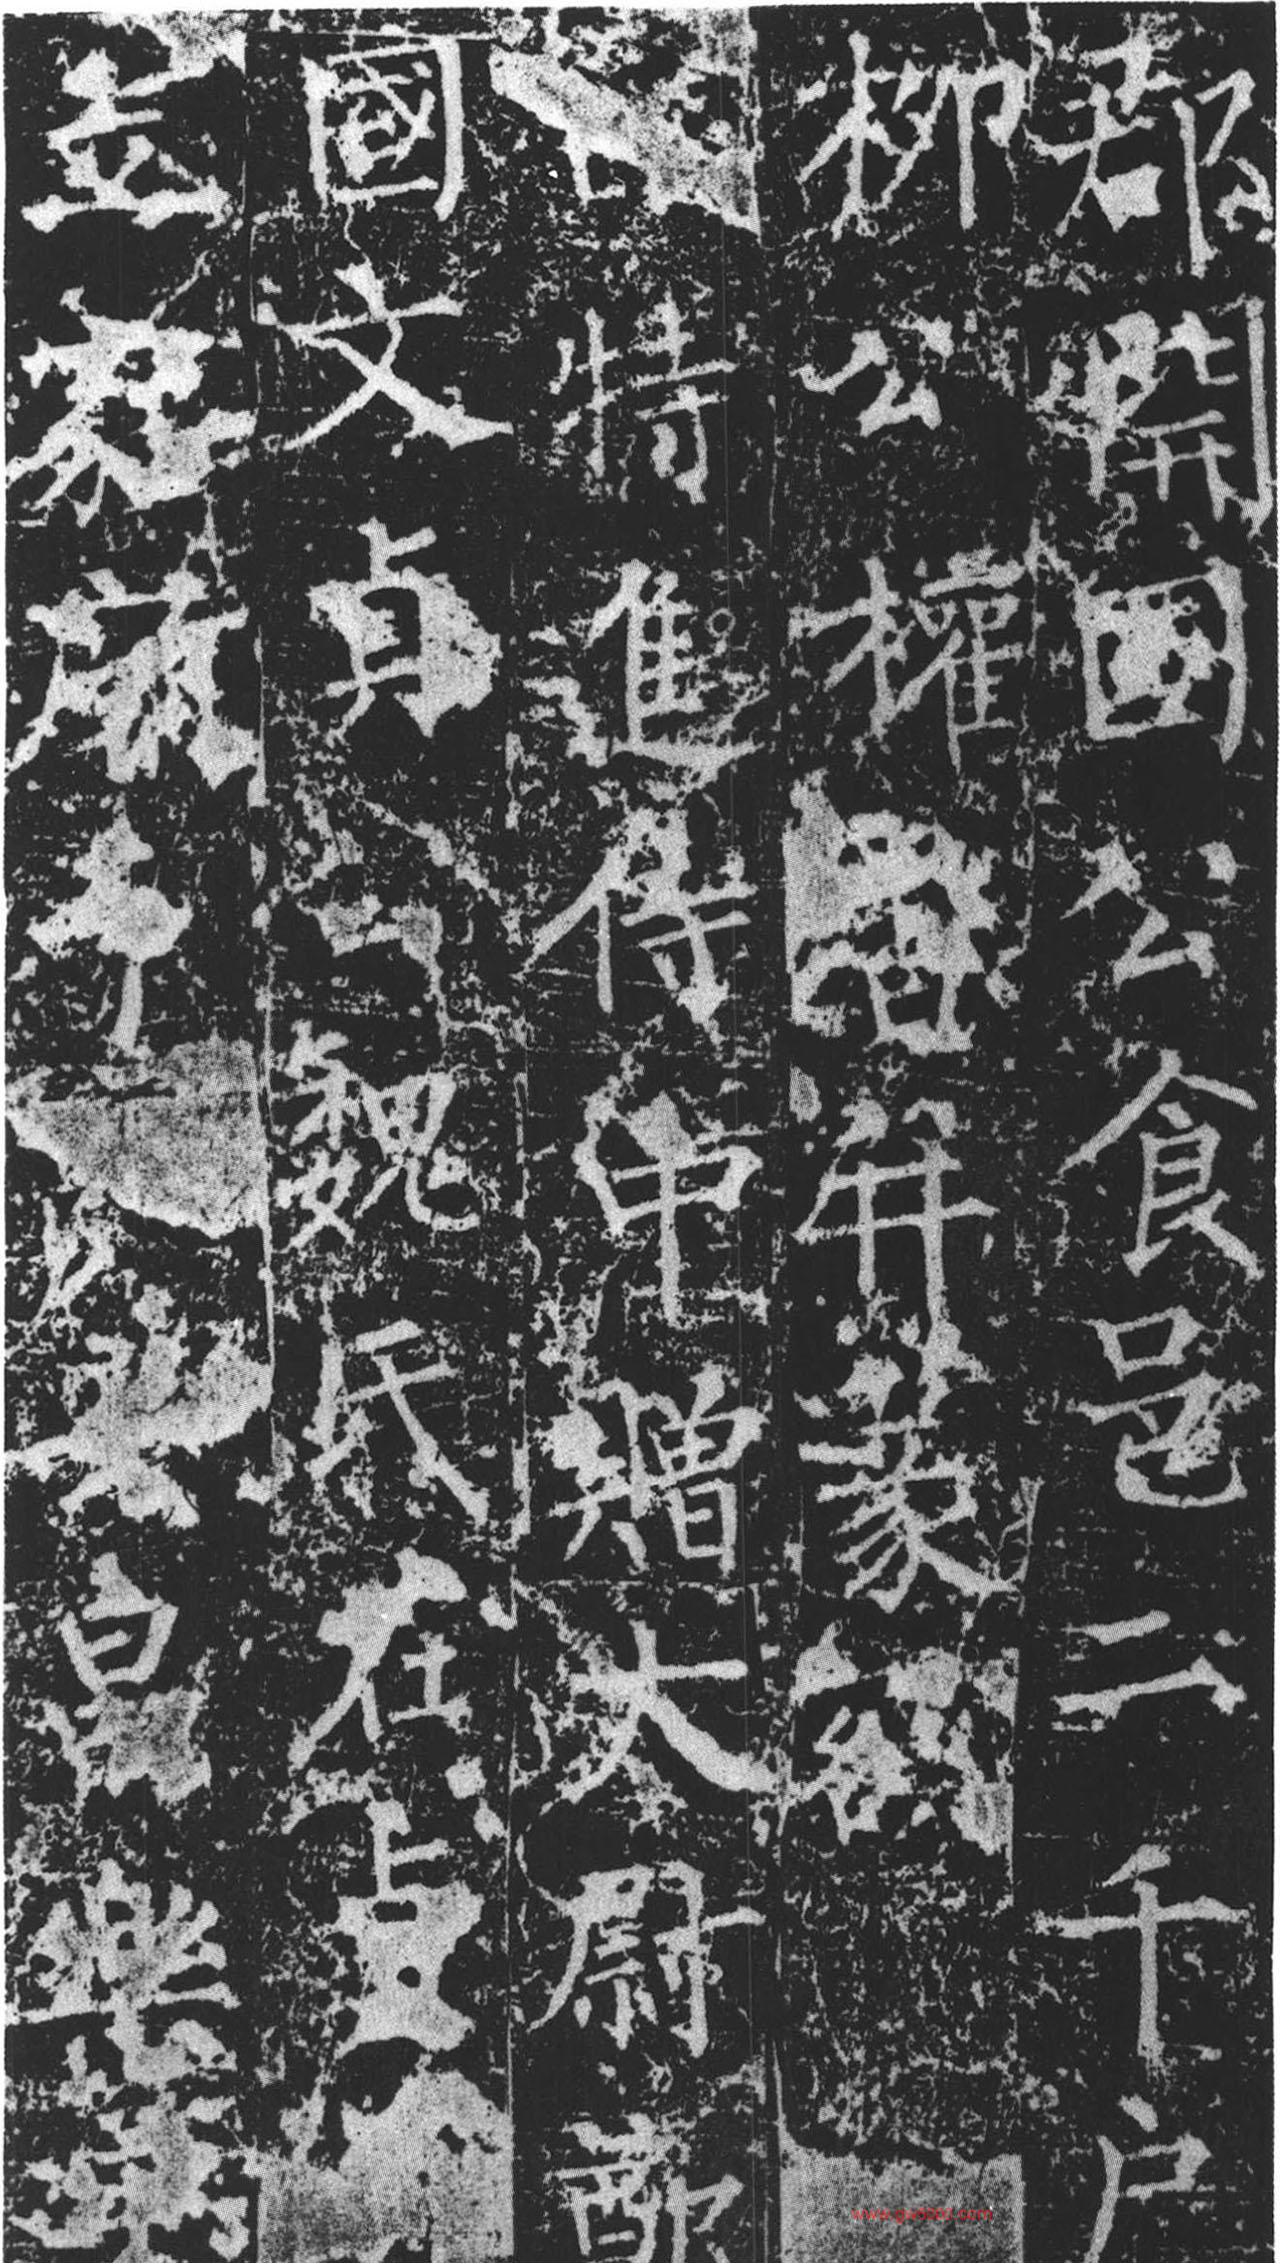 郡開國公食邑二千戶
柳公權書并篆額
特進侍中贈太尉鄭
國文貞公魏氏在貞
立家廟于昌樂
www.gw5000.com